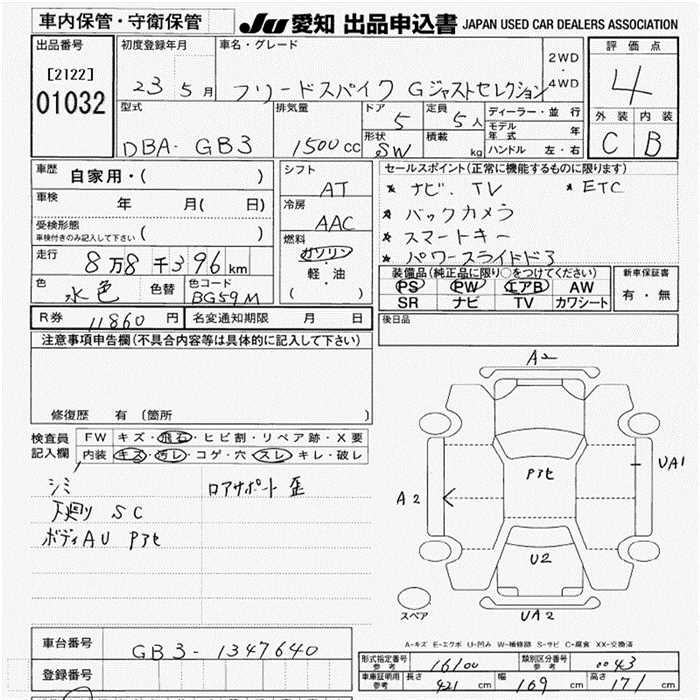 車内保管・守衛保管
JU 愛知 出品申込書 JAPAN USED CAR DEALERS ASSOCIATION
出品番号
[2122]
01032
初度登録年月
23 5 月
車名・グレード
フリードスパイク Gジャストセレクション
2WD
・
4WD
評価点
4
外装 内装
C B
型式
DBA- GB3
排気量
1500 cc
ドア
5
定員
5 人
形状
SW
積載
kg
ディーラー・並行
モデル年式 年
ハンドル 左・右
車歴
自家用・( )
車検
年 月( 日)
受検形態
車検付きのみ記入して下さい ( )
走行
8 万 8 千 396 km
色
水色
色替
色コード
BG59M
シフト
AT
冷房
AAC
燃料
ガソリン
・
軽・油
( )
セールスポイント(正常に機能するものに限ります)
* ナビ、TV * ETC
* バックカメラ
* スマートキー
* パワースライドド3
装備品(純正品に限り○をつけてください)
PS PW エアB AW
SR ナビ TV カワシート
新車保証書
有・無
R券 11860 円
名変通知期限 月 日
後日品
注意事項申告欄(不具合内容等は具体的に記入して下さい)
修復歴 有 〔箇所 〕
検査員
記入欄
FW キズ・飛石・ヒビ割・リペア跡・X要
内装 キズ・汚レ・コゲ・穴・スレ・キレ・破レ
シミ
下廻り SC
ボディAU Pアセ
ロアサポート 歪
A2
UA1
A2
Pアセ
U2
スペア
UA2
A-キズ E-エクボ U-凹み W-補修跡 S-サビ C-腐食 XX-交換済
車台番号
GB3-1347640
登録番号
形式指定番号
参考
16100
類別区分番号
参考
0043
車庫証明用
参考
長さ 421 cm
幅 169 cm
高さ 171 cm